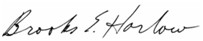 Brooks E. Harlow